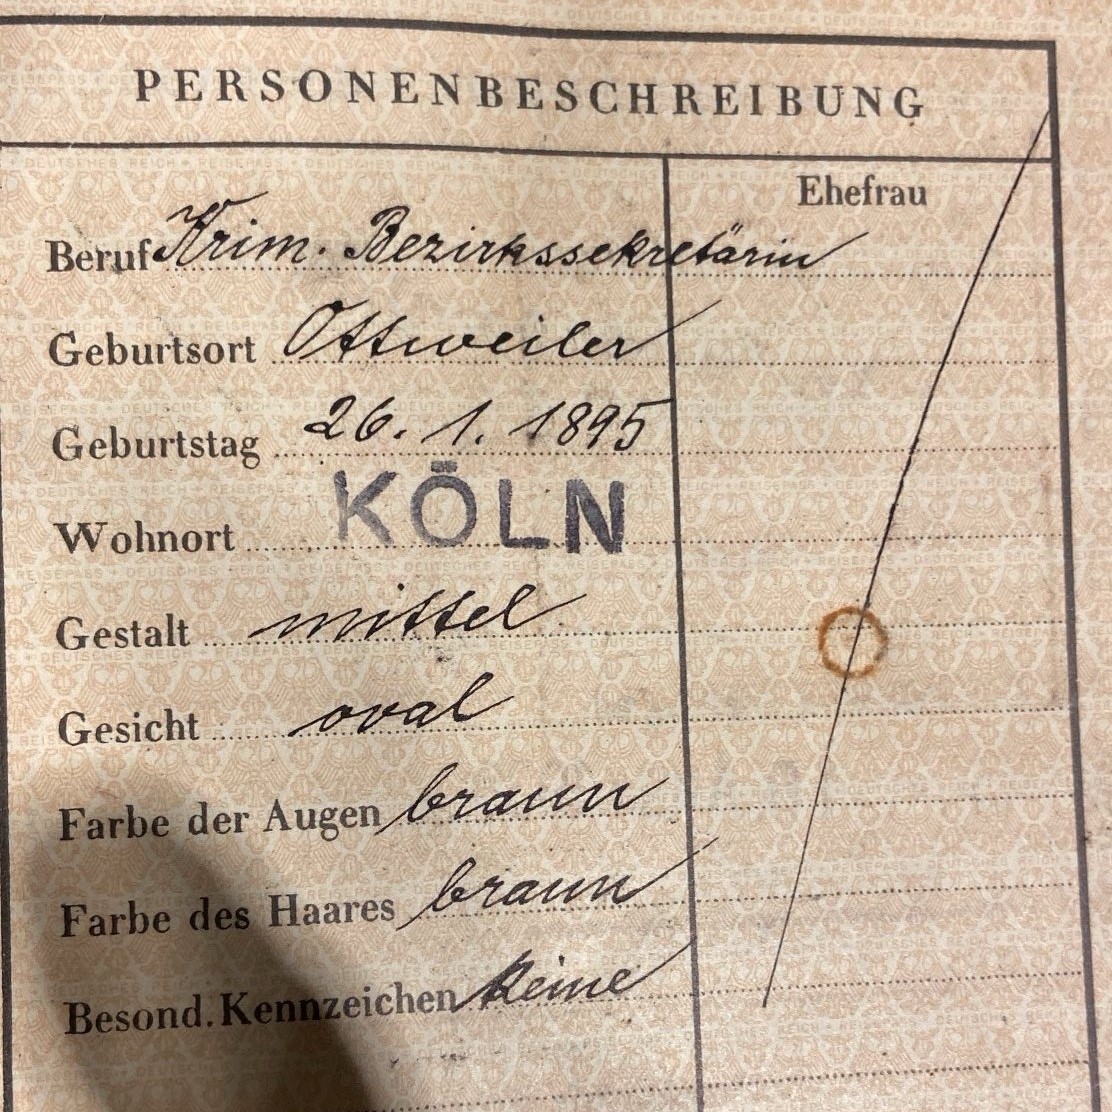 PERSONENBESCHREIBUNG
Ehefrau
Beruf Krim. Bezirkssekretärin
Geburtsort Ottweiler
Geburtstag 26. 1. 1895
Wohnort KÖLN
Gestalt mittel
Gesicht oval
Farbe der Augen braun
Farbe des Haares braun
Besond. Kennzeichen Keine